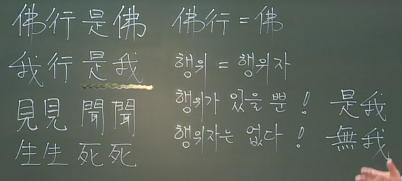 佛行是佛 佛行=佛
我行是我 행위=행위자
見見聞聞 행위가 있을 뿐! 是我
生生死死 행위자는 없다! 無我